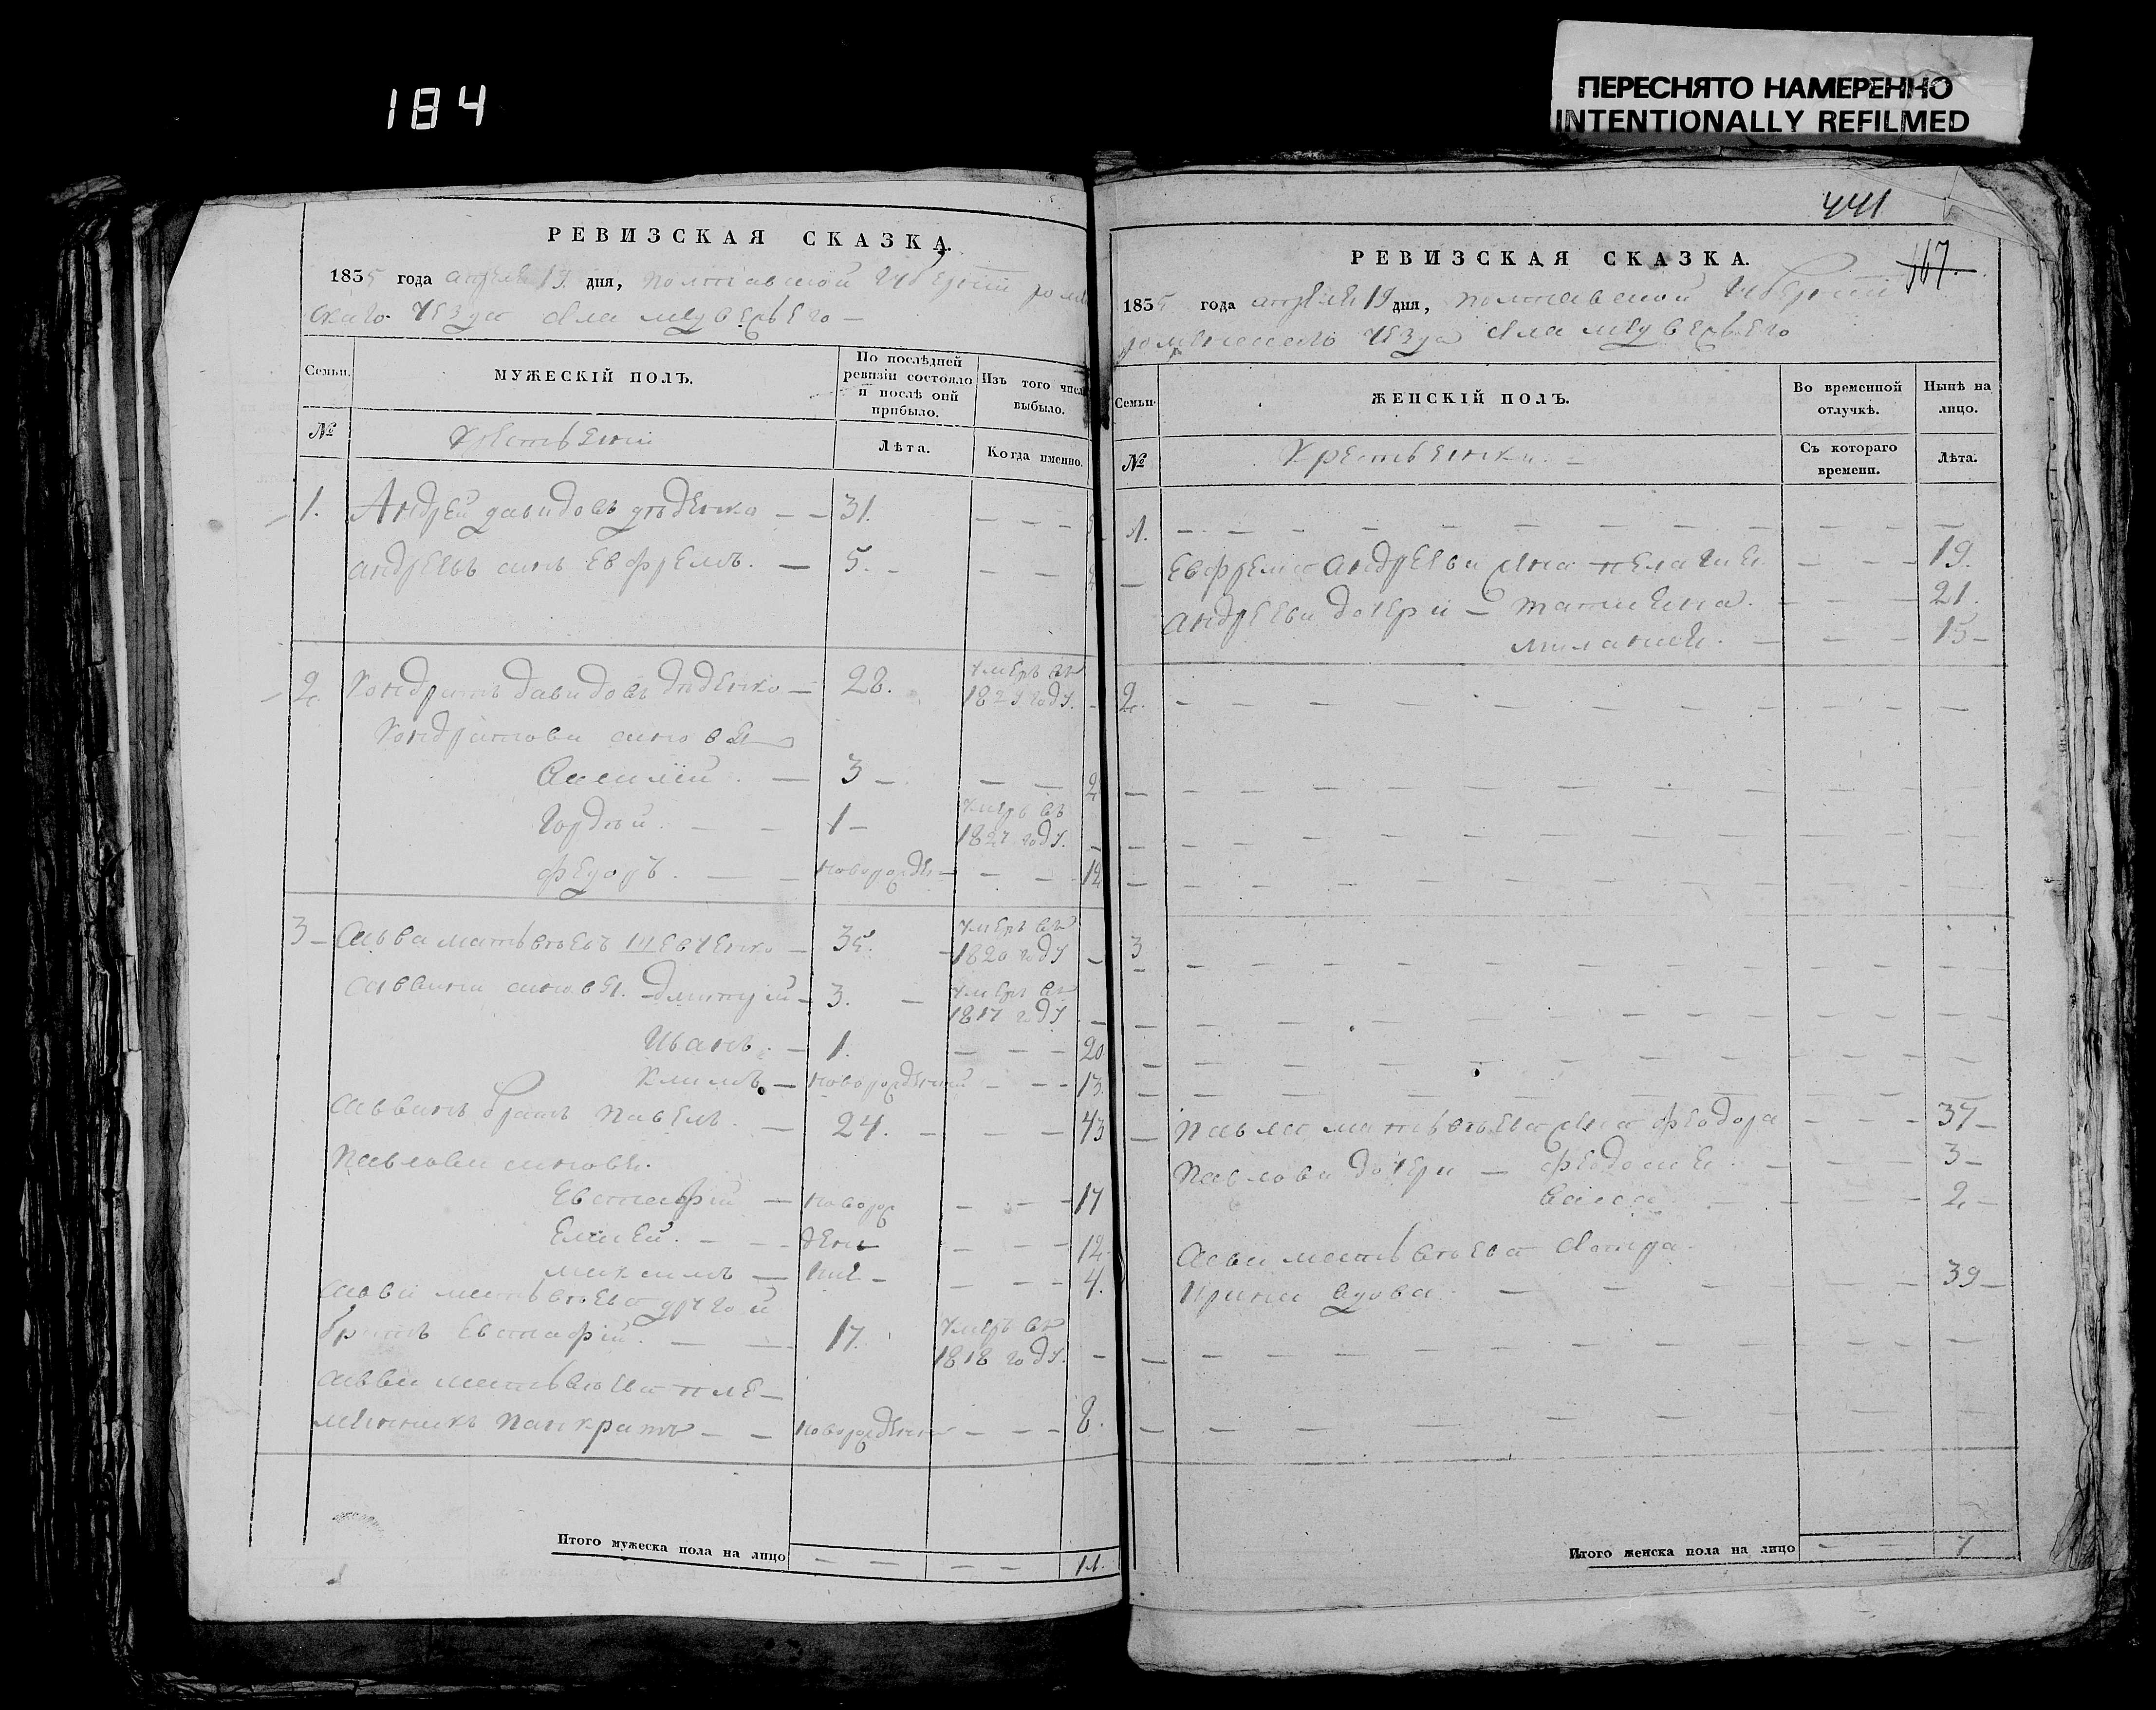 184
ПЕРЕСНЯТО НАМЕРЕННО
INTENTIONALLY REFILMED
РЕВИЗСКАЯ СКАЗКА.
1835 года апреля 19 дня, полтавской губернии роме
скаго уезда села медвежьего
Семьи.
МУЖЕСКІЙ ПОЛЪ.
По послѣдней ревизіи состояло и послѣ оній прибыло.
Изъ того числа выбыло.
№
Лѣта.
Когда именно.
1. Андрей давидовъ дѣденко 31.
андреевъ синъ Евфремъ. 5.
2. Кондратъ давидовъ дѣденко 28. умеръ въ 182 году.
Кондратови синовя
3
Гордѣй. 1 умеръ въ 1827 году.
федоръ. новорожден 12
3 Савва матвѣевъ шевченко 35. умеръ въ 1820 году
саввини синовя. дмитрій 3. умеръ въ 1817 году
Иванъ. 1. 20
Климъ новорожденній 13.
саввинъ братъ павелъ. 24. 43
павлови синовя.
Евстафій новорож 17
Елисей. ден 12
максимъ ніе 4.
савви матвѣева другой
братъ Евстафій. 17. умеръ въ 1818 году.
савви матвѣева пле
менникъ панкратъ новорожденн 8.
Итого мужеска пола на лицо 11.
441
РЕВИЗСКАЯ СКАЗКА.
1835 года апреля 19 дня, полтавской губернии
роменскаго уезда села медвежьего
Семьи.
ЖЕНСКІЙ ПОЛЪ.
Во временной отлучкѣ.
Нынѣ на лицо.
№
Съ котораго времени.
Лѣта.
1.
Евфрема андреева жена пелагия 19.
андрееви дочери татиена. 21.
миланія. 15
2.
3
павла матвѣева жена феодора 37
павлови дочери феодосия 3
васса 2
савви матвѣева сестра
ирина вдова. 39
Итого женска пола на лицо 7